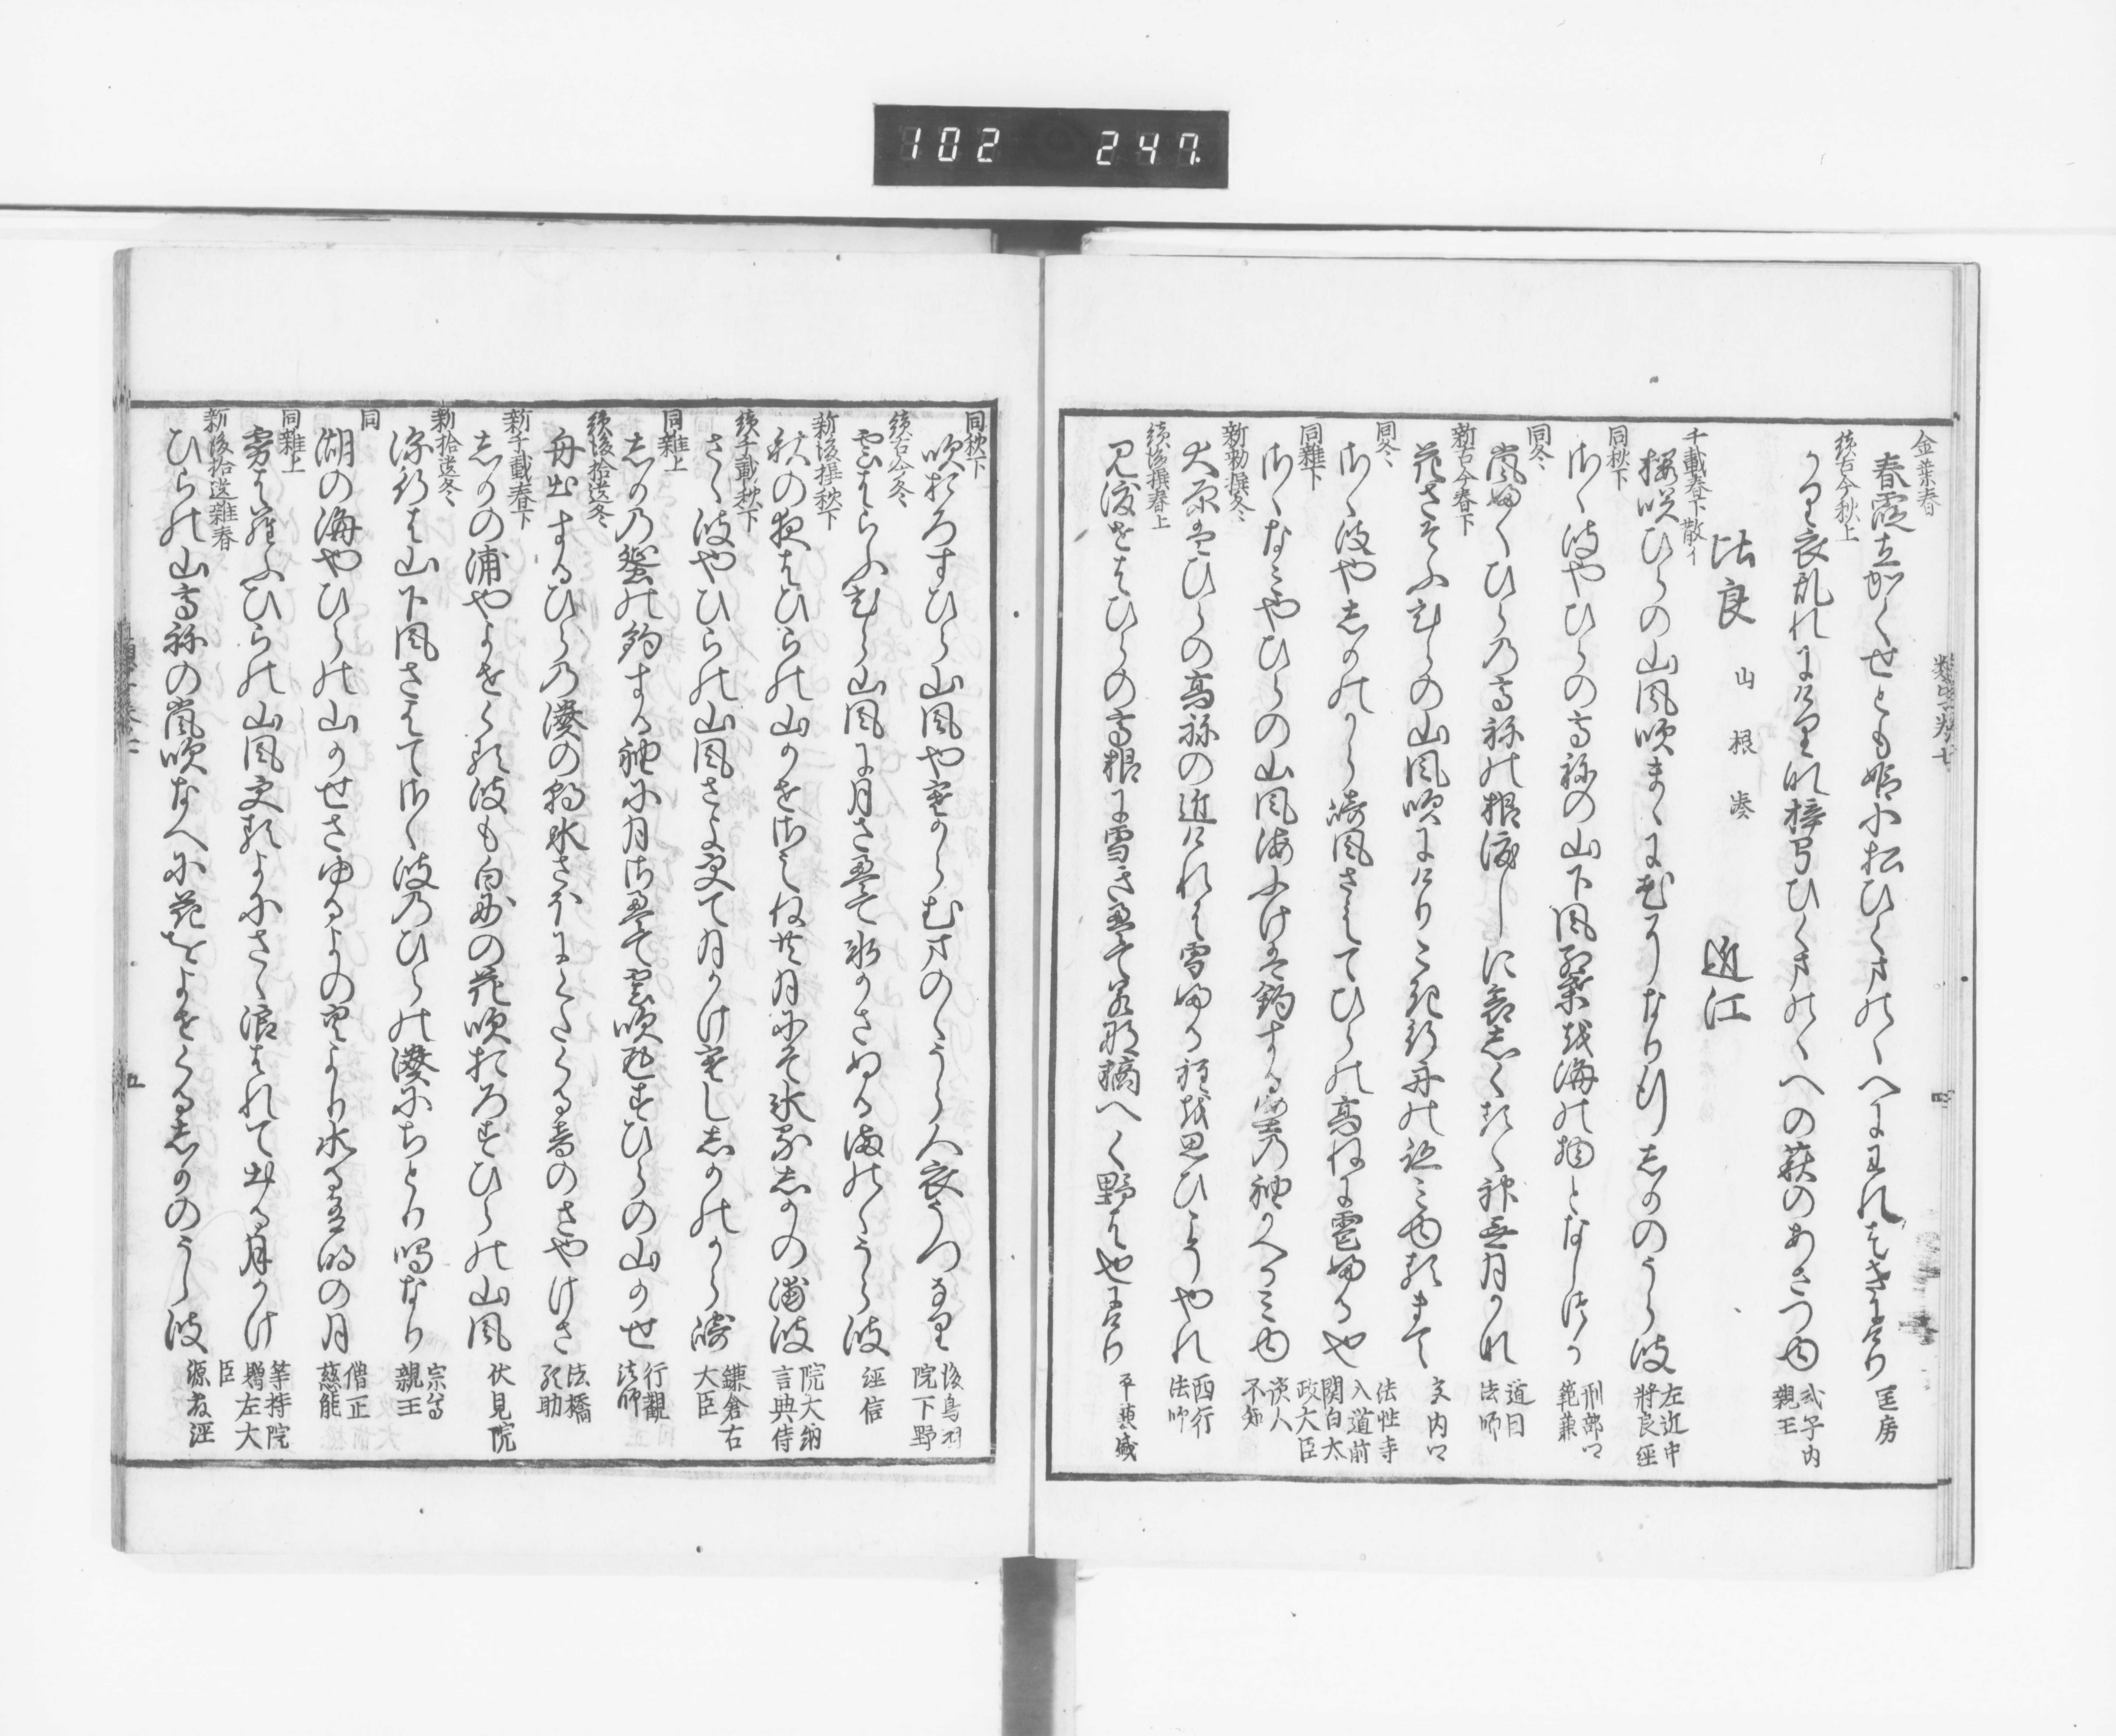 102 247
金葉春
春霞立かくせとも姫小松ひくまのゝへにわれはきにけり 匡房
続古今秋上
かり衣乱れにけりな梓弓ひくまのゝへの萩のあさつゆ 式子内親王
比良 山 根 湊 近江
千載春下 散イ
桜咲ひらの山風吹まゝに花になりゆくしかのうら波 左近中将良経
同秋下
さゝ波やひらの高ねの山下風紅葉を海の物となしける 刑部卿範兼
同冬
嵐ふくひらの高ねの根渡しにあはれしくるゝ神無月かな 道因法師
新古今春下
花さそふひらの山風吹にけりこき行舟の跡みゆるまて 宮内卿
同冬
さゝ波やしかのから崎風さえてひらの高ねに霰ふる也 法性寺入道前関白太政大臣
同雑下
さゝなみやひらの山風海ふけは釣する蜑の袖かへるみゆ 読人不知
新勅撰冬
大原はひらの高ねの近けれは雪ふる程を思ひこそやれ 西行法師
続後撰春上
見渡せはひらの高根に雪きえて若菜摘へく野はなりにけり 平兼盛
同秋下
吹おろすひら山風や寒からむまのゝうら人衣うつなり 後鳥羽院下野
続古今冬
雲はらふひら山風に月さえて氷かさぬるまのゝうら波 経信
新後撰秋下
秋の夜はひらの山かせさえねとも月にそ氷るしかの浦波 院大納言典侍
続千載秋下
さゝ波やひらの山風さよ更て月かけ寒ししかのから崎 鎌倉右大臣
同雑上
しかの乃蜑の釣する袖に月さえて雲吹かへすひらの山かせ 行観法師
続後拾遺冬
舟出するひらの湊の朝氷さほにくたくる音のさやけさ 法橋顕助
新千載春下
しかの浦やよせくる波も白妙の花吹おろすひらの山風 伏見院
新拾遺冬
深行は山下風さえてさゝ波のひらの湊にちとり鳴なり 宗尊親王
同
湖の海やひらの山かせさゆるよの空より氷る有明の月 僧正慈能
同雑上
雲はらふひらの山風更るよにさゝ浪はれて出る月かけ 等持院贈左大臣
新後拾遺雑春
ひらの山高ねの嵐吹なへに花をよせくるしかのうら波 源孝経